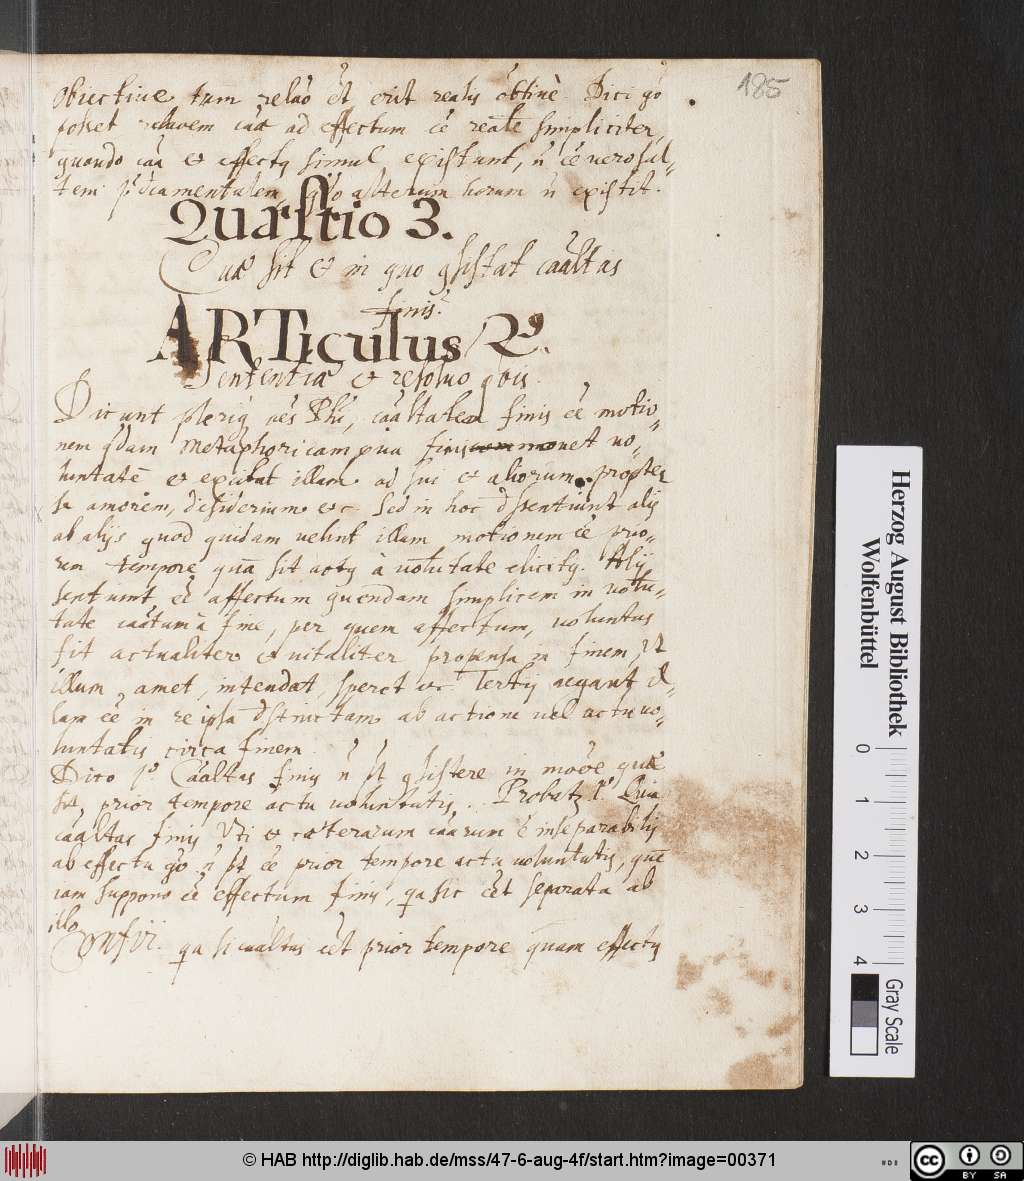 185
obiectiue tum relaō ēt erit realis
posset relatiuem cāæ ad effectum ēē realē simpliciter,
quando cāa et effectꝯ simul existunt, ñ ēē vero sal„
tem prædicamentalem, qdo alterum horum ñ existit.
Quæstio 3.
Quæ sit & in quo ꝯsistat cāaltas
finis?
ARTiculus
Sententiæ et resoluo
Dicunt pleriqꝫ Phi, cāaltatem finis ēē motio„
nem qdam Metaphoricam qua finis mouet uo„
luntatē et excitat illam ad sui et aliorum propter
se amorem, desiderium etc. Sed in hoc dissentiunt alij
ab alijs quod quidam uelint illam motionem ēē prio„
rem tempore quā sit actꝯ à uolūtate elicitꝯ. Alij
sentiunt ēē affectum quendam simplicem in uolū„
tate cātum à fine, per quem affectum, uoluntas
fit actualiter et uitaliter propensa in finem, ut
illum, amet, intendat, speret etc. Tertij negant il„
lam ēē in re ipsa distinctam ab actione uel actu uo„
luntatis circa finem.
Dico p̊ Cāaltas finis ñ pt ꝯsistere in moōe quæ
sit prior tempore actu uoluntatis. Probatꝛ 1º Quia
cāaltas finis Uti et cæterarum cāarum ē inseparabilis
ab effectu gō ñ pt ēē prior tempore actu uoluntatis, quē
iam suppono ēē effectum finis, qa sic ēēt separata ab
illo
Confir. qa si cāaltas ēēt prior tempore quam effectꝯ
Herzog August Bibliothek
Wolfenbüttel
0 1 2 3 4
Gray Scale
© HAB http://diglib.hab.de/mss/47-6-aug-4f/start.htm?image=00371
cc BY SA